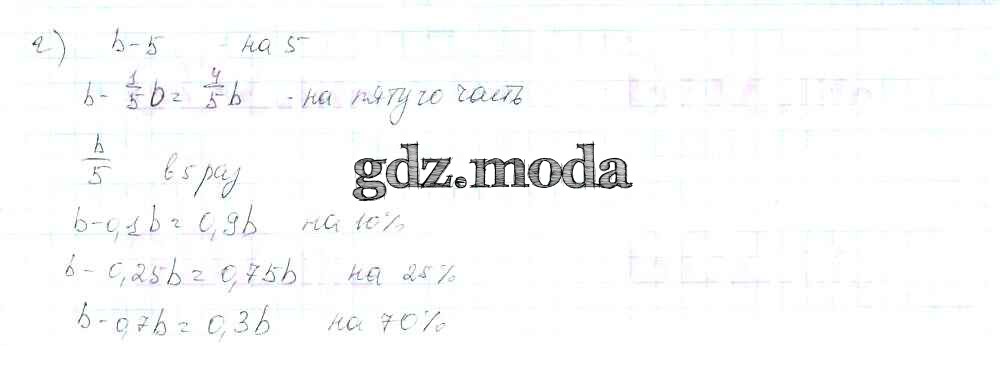 г) b-5 на 5
b - 1/5 b = 4/5 b - на пятую часть
b/5 в 5 раз
gdz.moda
b-0,1b = 0,9b на 10%
b - 0,25b = 0,75b на 25%
b-0,7b = 0,3b на 70%